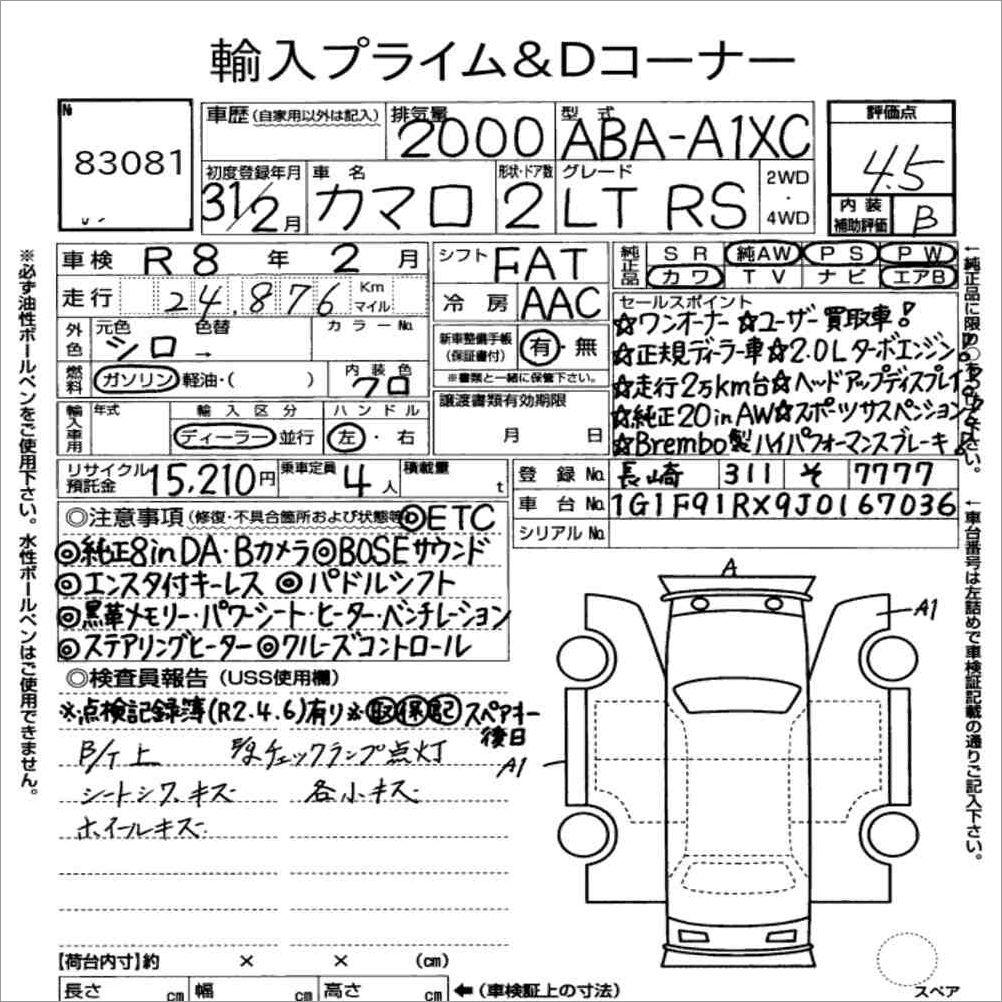 輸入プライム&Dコーナー
№ 83081
車歴 (自家用以外は記入) 排気量 2000 型式 ABA-A1XC 評価点 4.5
初度登録年月 31/2月 車名 カマロ 形状・ドア数 2 グレード LT RS 2WD・4WD 内装補助評価 B
車検 R8年 2月 シフト FAT 純正品 SR 純AW PS PW
カワ TV ナビ エアB
走行 24,876 Km マイル 冷房 AAC
セールスポイント
☆ワンオーナー☆ユーザー買取車!
☆正規ディーラー車☆2.0Lターボエンジン!
☆走行2万km台☆ヘッドアップディスプレイ
☆純正20inAW☆スポーツサスペンション
☆Brembo製ハイパフォーマンスブレーキ!
外色 元色 シロ → 色替 カラーNo.
新車整備手帳(保証書付) 有・無
※書類と一緒に保管下さい。
燃料 ガソリン 軽油・( ) 内装色 クロ
譲渡書類有効期限 月 日
輸入車用 年式 輸入区分 ディーラー 並行 ハンドル 左・右
リサイクル預託金 15,210円 乗車定員 4人 積載量 t
登録No. 長崎 311 そ 7777
車台No. 1G1F91RX9J0167036
シリアルNo.
◎注意事項(修復・不具合箇所および状態等 ◎ETC
◎純正8inDA・Bカメラ◎BOSEサウンド
◎エンスタ付キーレス ◎パドルシフト
◎黒革メモリー・パワーシート・ヒーター・ベンチレーション
◎ステアリングヒーター◎クルーズコントロール
◎検査員報告(USS使用欄)
※点検記録簿(R2.4.6)有り※取保記スペアキー
後日
チェックランプ点灯
シートシワ、キズ 各小キズ
ホイールキズ
A
A1
A1
【荷台内寸】約 × × (cm)
長さ cm 幅 cm 高さ cm ←(車検証上の寸法)
スペア
※必ず油性ボールペンをご使用下さい。水性ボールペンはご使用できません。
←純正品に限
い。
←車台番号は左詰めで車検証記載の通りご記入下さい。